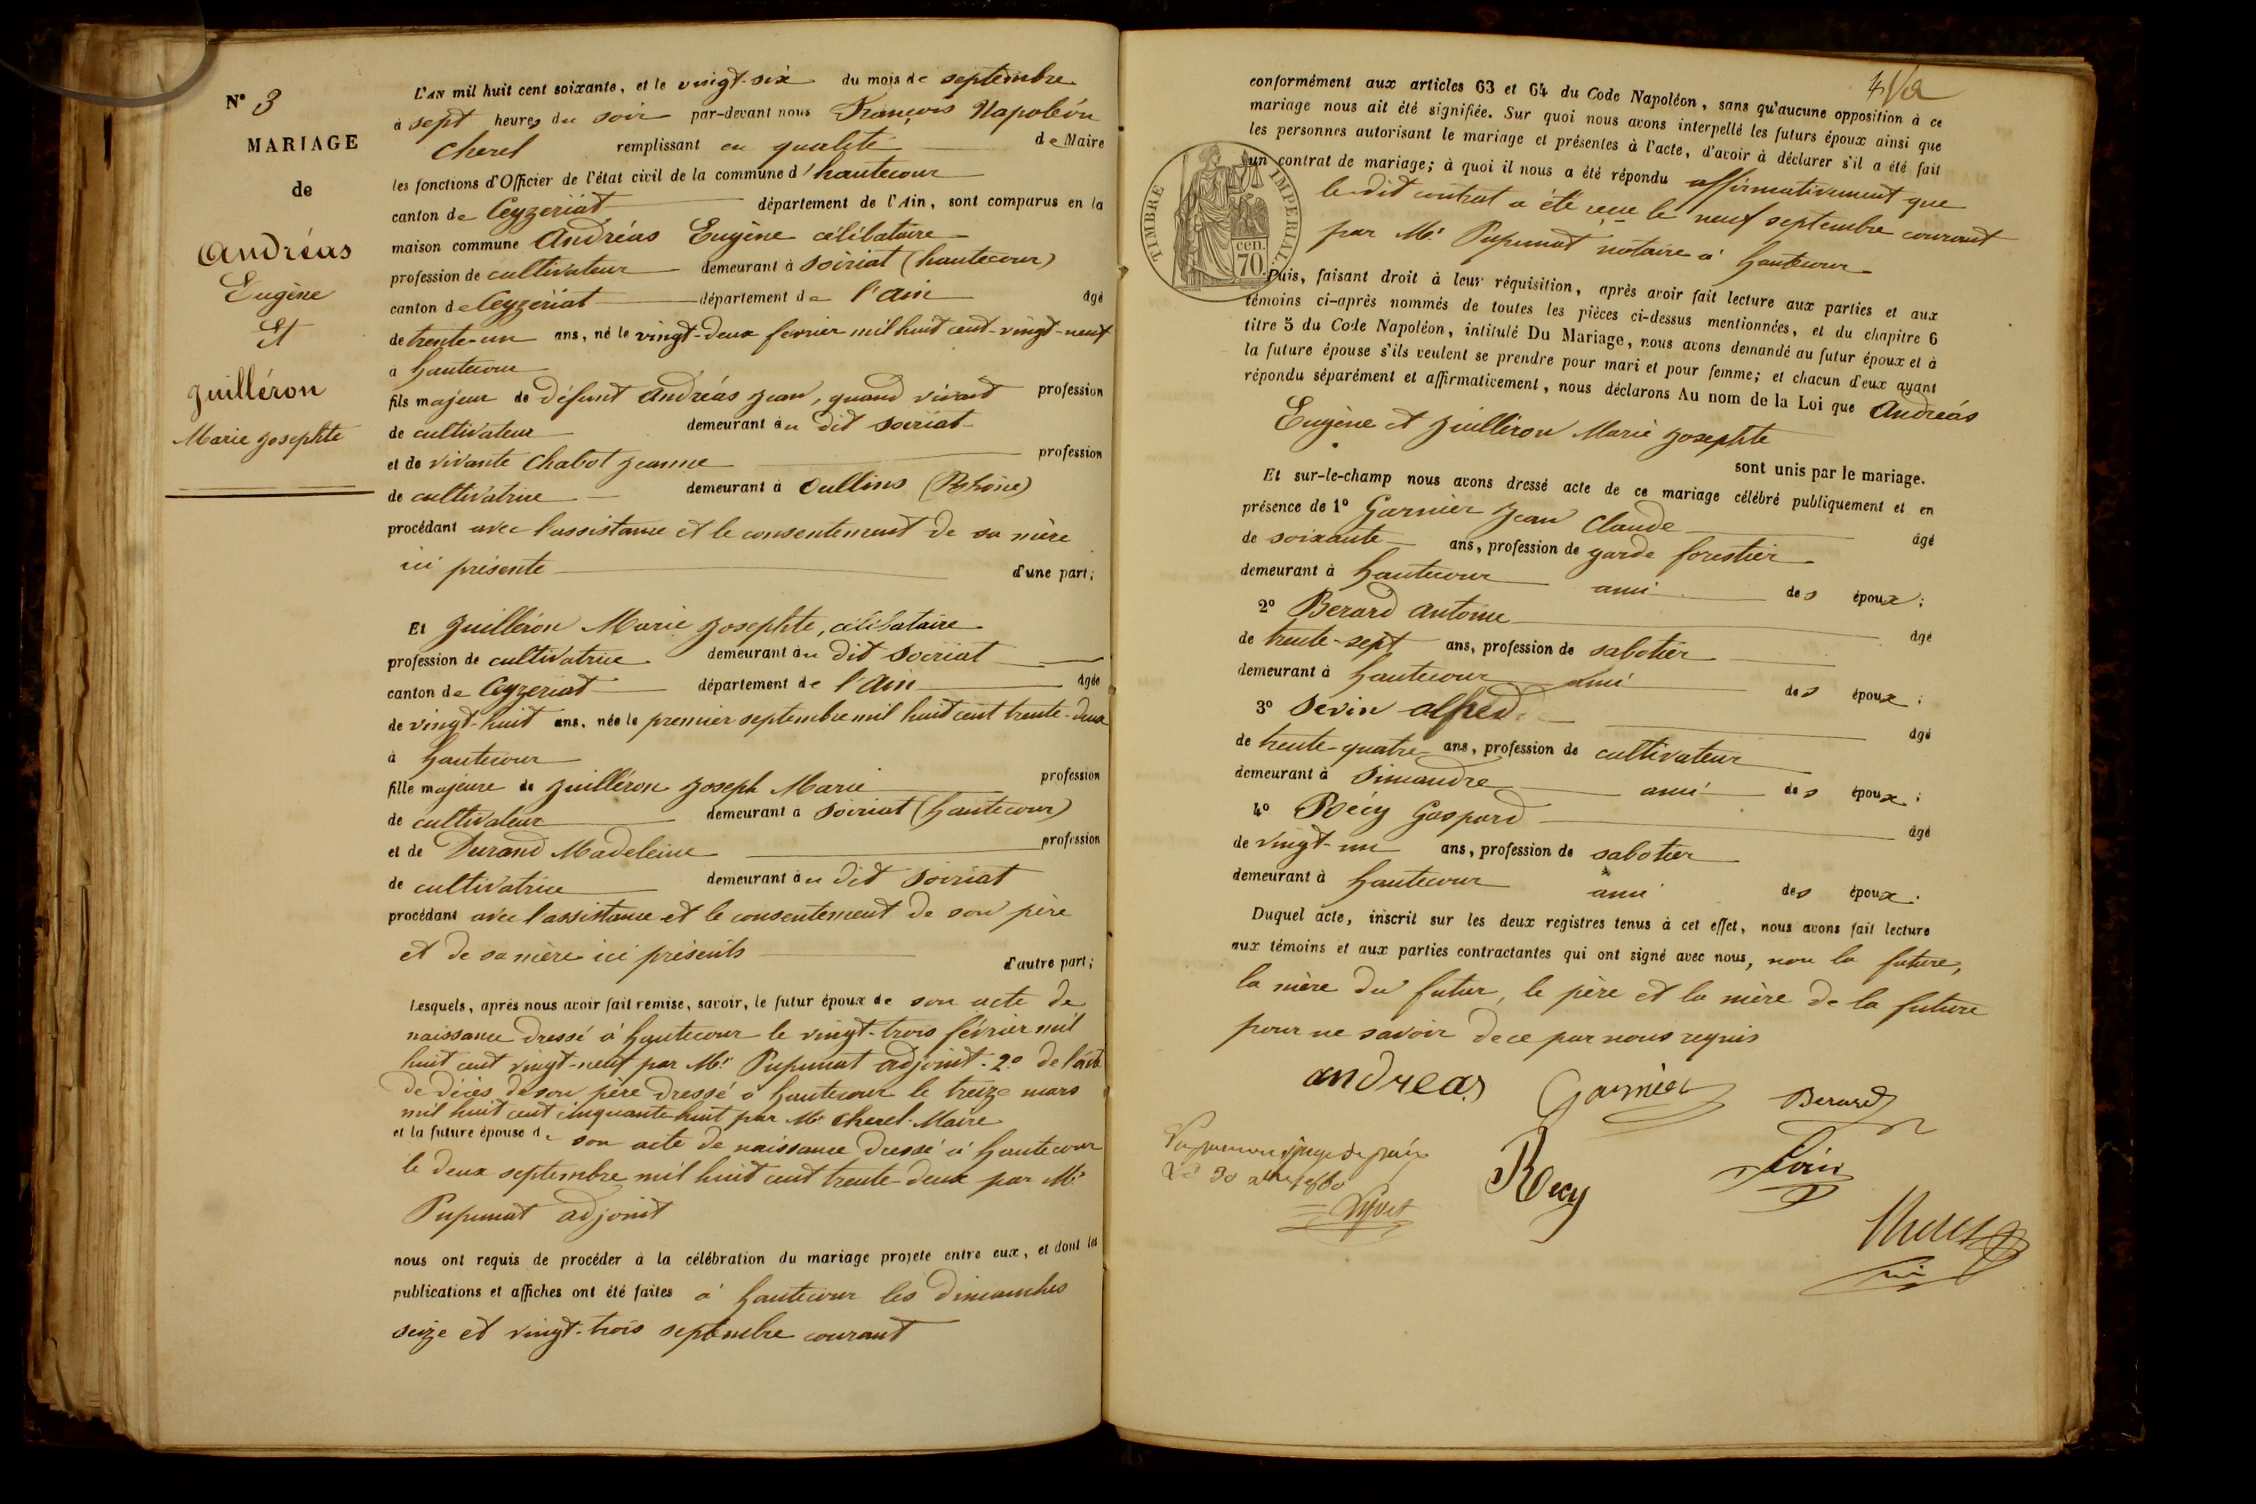 N° 3
MARIAGE
de
Andréas
Eugène
Et
Juilléron
Marie Josephte
L'AN mil huit cent soixante, et le vingt-six du mois de septembre
à sept heures du soir par-devant nous François Napoléon
Cherel remplissant en qualité de Maire
les fonctions d'Officier de l'état civil de la commune d'hautecour
canton de Ceyzeriat département de l'Ain, sont comparus en la
maison commune Andréas Eugène célibataire
profession de cultivateur demeurant à Soiriat (hautecour)
canton de Ceyzeriat département de l'Ain âgé
de trente-un ans, né le vingt-deux fevrier mil huit cent-vingt-neuf
à hautecour
fils majeur de défunt Andréas Jean, quand vivait profession
de cultivateur demeurant au dit Soiriat
et de vivante Chabot Jeanne profession
de cultivatrice demeurant à Oullins (Rhône)
procédant avec l'assistance et le consentement de sa mère
ici présente d'une part;
Et Juilléron Marie Josephte, célibataire
profession de cultivatrice demeurant au dit Soiriat
canton de Ceyzeriat département de l'Ain âgée
de vingt-huit ans, née le premier septembre mil huit cent trente-deux
à hautecour
fille majeure de Juilléron Joseph Marie profession
de cultivateur demeurant à Soiriat (hautecour)
et de Durand Madeleine profession
de cultivatrice demeurant au dit Soiriat
procédant avec l'assistance et le consentement de son père
et de sa mère ici présents d'autre part;
Lesquels, après nous avoir fait remise, savoir, le futur époux de son acte de
naissance dressé à hautecour le vingt-trois février mil
huit cent vingt-neuf par Mr Pupunat adjoint. 2° de l'acte
de décès de son père dressé à hautecour le treize mars
mil huit cent cinquante huit par Mr Cherel Maire
et la future épouse de son acte de naissance dressé à hautecour
le deux septembre mil huit cent trente-deux par Mr
Pupunat adjoint
nous ont requis de procéder à la célébration du mariage projeté entre eux, et dont les
publications et affiches ont été faites à hautecour les dimanches
seize et vingt-trois septembre courant
conformément aux articles 63 et 64 du Code Napoléon, sans qu'aucune opposition à ce
mariage nous ait été signifiée. Sur quoi nous avons interpellé les futurs époux ainsi que
les personnes autorisant le mariage et présentes à l'acte, d'avoir à déclarer s'il a été fait
un contrat de mariage; à quoi il nous a été répondu affirmativement que
le dit contrat a été reçu le neuf septembre courant
par Mr Pupunat notaire à hautecour
TIMBRE IMPERIAL
cen.
70
Puis, faisant droit à leur réquisition, après avoir fait lecture aux parties et aux
témoins ci-après nommés de toutes les pièces ci-dessus mentionnées, et du chapitre 6
titre 5 du Code Napoléon, intitulé Du Mariage, nous avons demandé au futur époux et à
la future épouse s'ils veulent se prendre pour mari et pour femme; et chacun d'eux ayant
répondu séparément et affirmativement, nous déclarons Au nom de la Loi que Andréas
Eugène et Juilléron Marie Josephte
sont unis par le mariage.
Et sur-le-champ nous avons dressé acte de ce mariage célébré publiquement et en
présence de 1° Garnier Jean Claude âgé
de soixante ans, profession de garde forestier
demeurant à hautecour ami des époux;
2° Berard Antoine âgé
de trente-sept ans, profession de sabotier
demeurant à hautecour ami des époux;
3° Sevin Alfred âgé
de trente-quatre ans, profession de cultivateur
demeurant à Simandre ami des époux;
4° Récy Gaspard âgé
de vingt-un ans, profession de sabotier
demeurant à hautecour ami des époux.
Duquel acte, inscrit sur les deux registres tenus à cet effet, nous avons fait lecture
aux témoins et aux parties contractantes qui ont signé avec nous, non la future,
la mère du futur, le père et la mère de la future
pour ne savoir de ce par nous requis
andreas Garnier Berard
juge de paix
Recy
Cherel